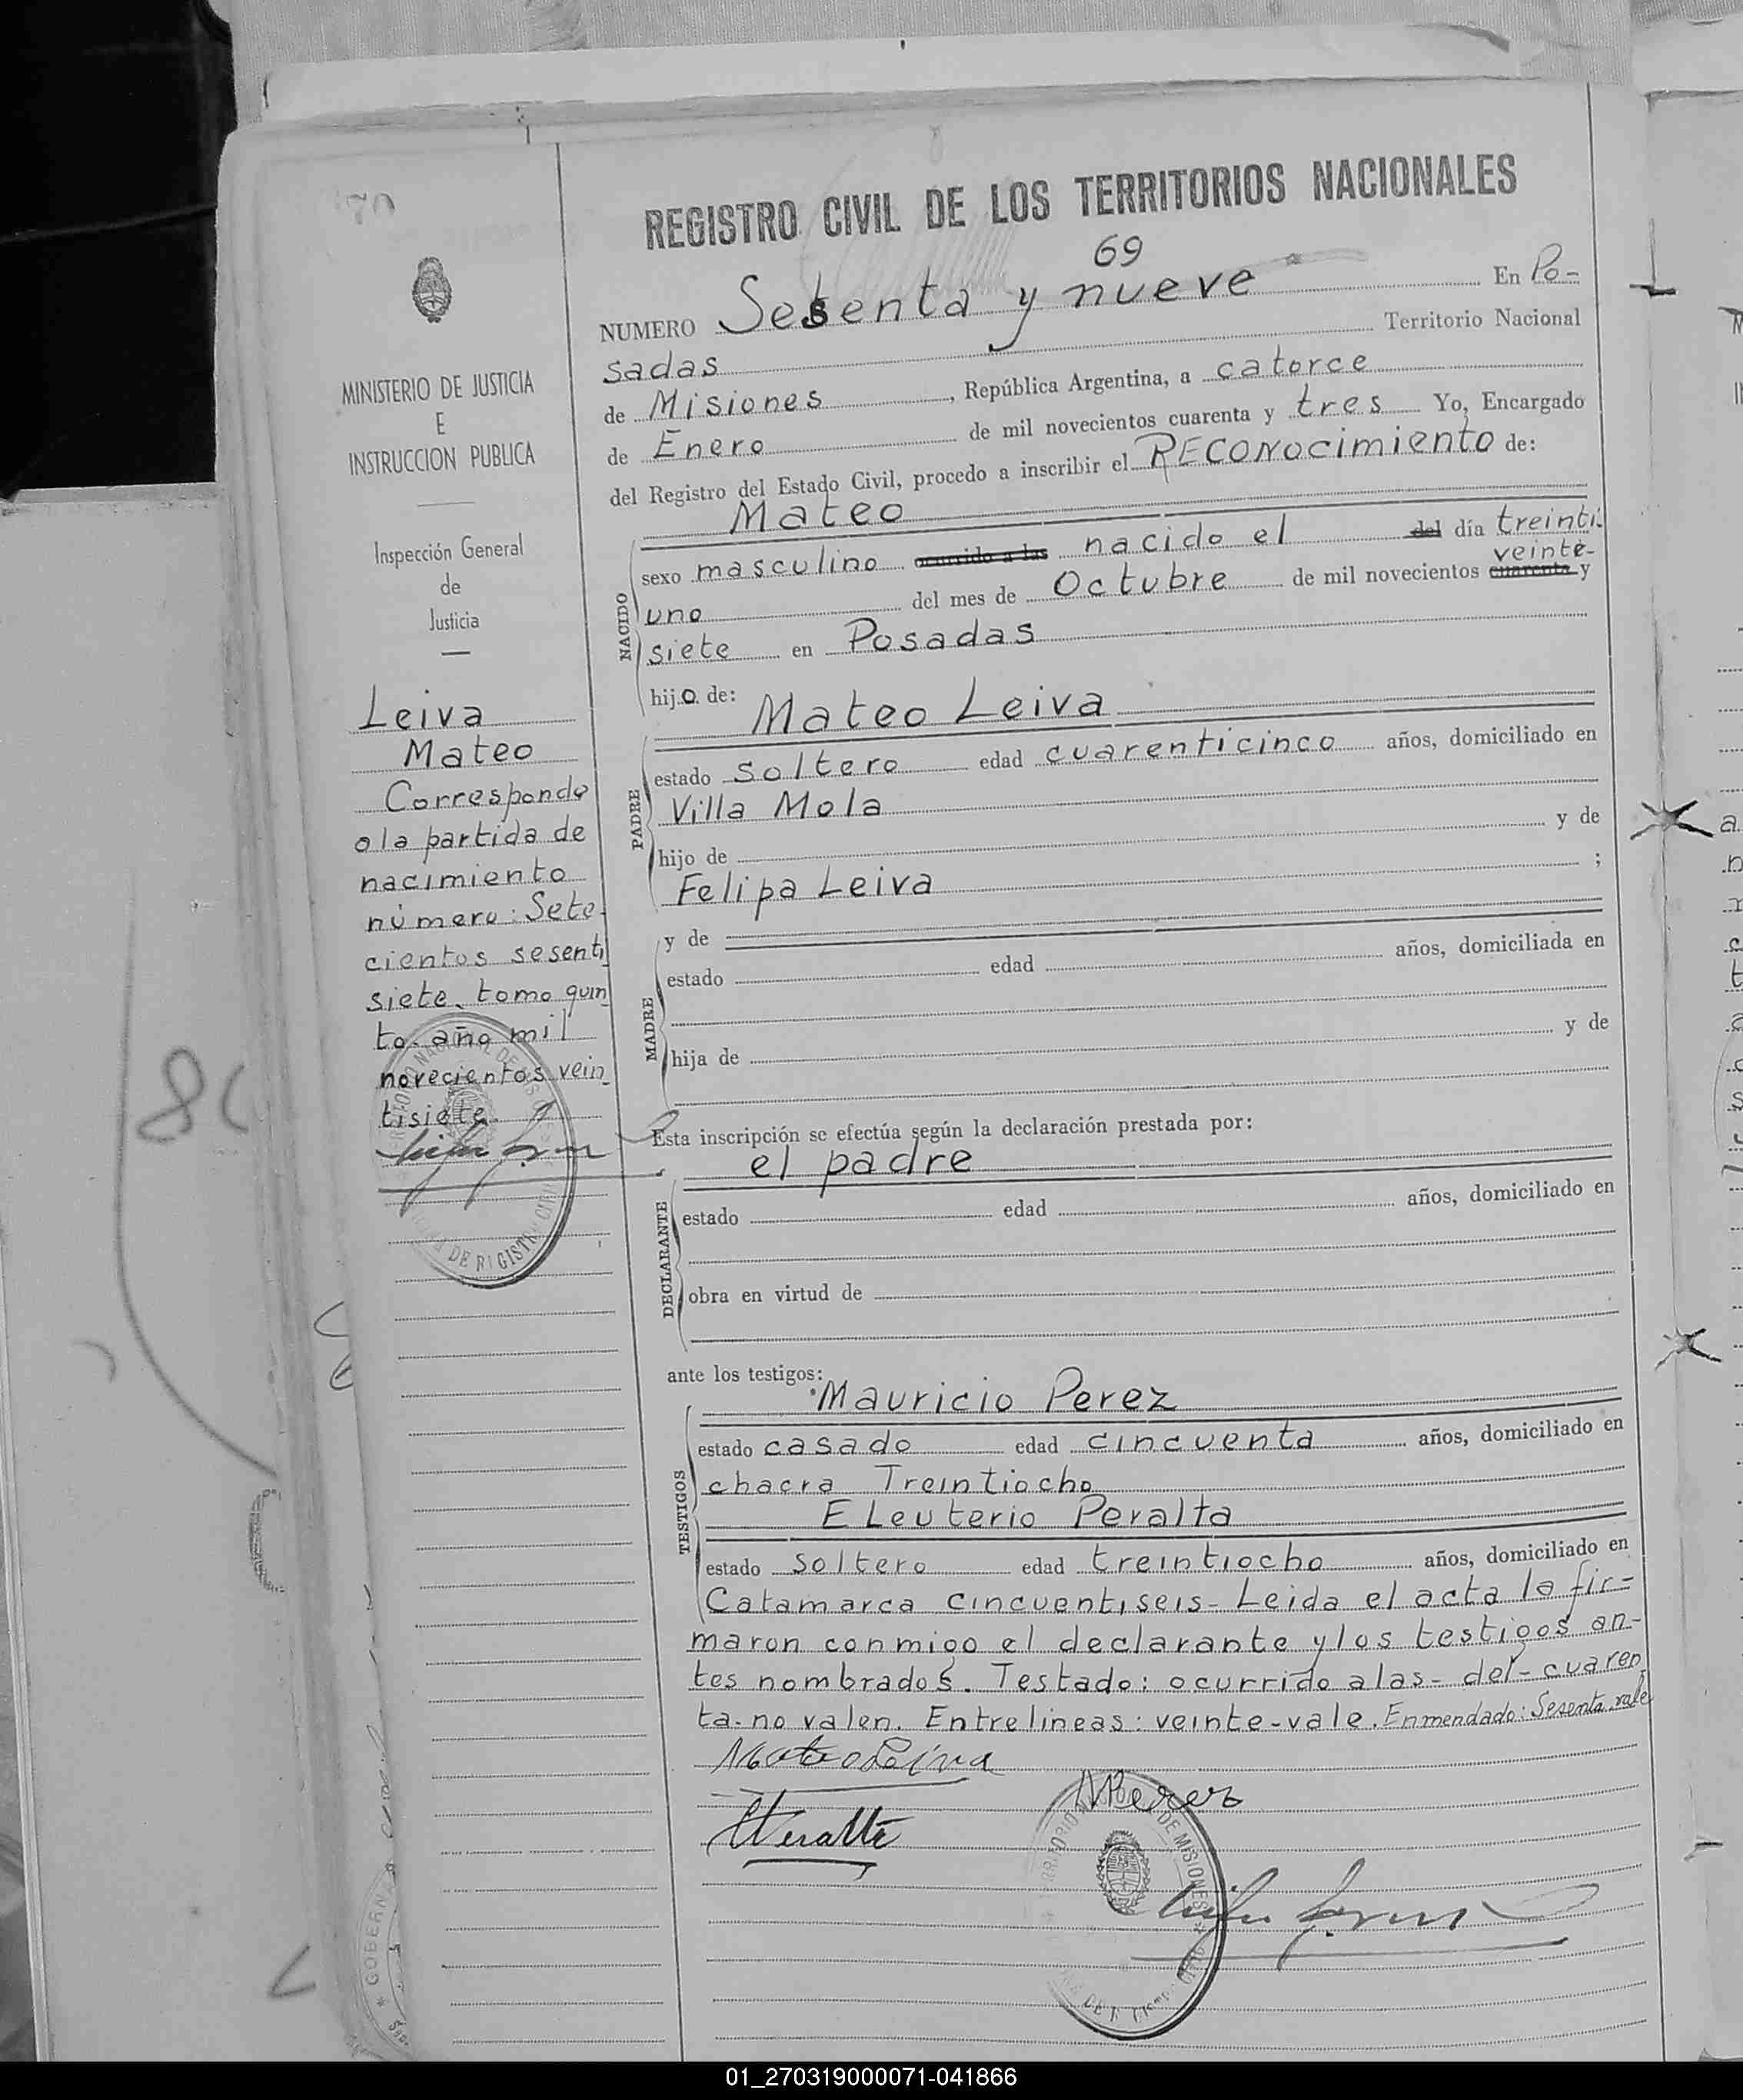 70
MINISTERIO DE JUSTICIA
E
INSTRUCCION PUBLICA
Inspección General
de
Justicia
Leiva
Mateo
Corresponde
a la partida de
nacimiento
número: Sete-
cientos sesenti
siete, tomo quin
to. año mil
novecientos vein
tisiete.
REGISTRO CIVIL DE LOS TERRITORIOS NACIONALES
69
NUMERO Sesenta y nueve En Po-
sadas Territorio Nacional
de Misiones, República Argentina, a catorce
de Enero de mil novecientos cuarenta y tres Yo, Encargado
del Registro del Estado Civil, procedo a inscribir el RECONOCIMIENTO de:
Mateo
NACIDO
sexo masculino ocurrido a las nacido el del día treinti-
veinte-
uno del mes de Octubre de mil novecientos cuarenta y
siete en Posadas
hijo de: Mateo Leiva
PADRE
estado soltero edad cuarenticinco años, domiciliado en
Villa Mola
hijo de y de
Felipa Leiva ;
y de
MADRE
estado edad años, domiciliada en
hija de y de
Esta inscripción se efectúa según la declaración prestada por:
el padre
DECLARANTE
estado edad años, domiciliado en
obra en virtud de
ante los testigos:
Mauricio Perez
TESTIGOS
estado casado edad cincuenta años, domiciliado en
chacra Treintiocho
Eleuterio Peralta
estado soltero edad treintiocho años, domiciliado en
Catamarca cincuentiseis- Leida el acta la fir=
maron conmigo el declarante y los testigos an-
tes nombrados. Testado: ocurrido a las- del- cuaren
ta- no valen. Entrelineas: veinte-vale. Enmendado: Sesenta. vale
Mateo Leiva
MPerez
EPeralta
DE MISIONES
01_270319000071-041866